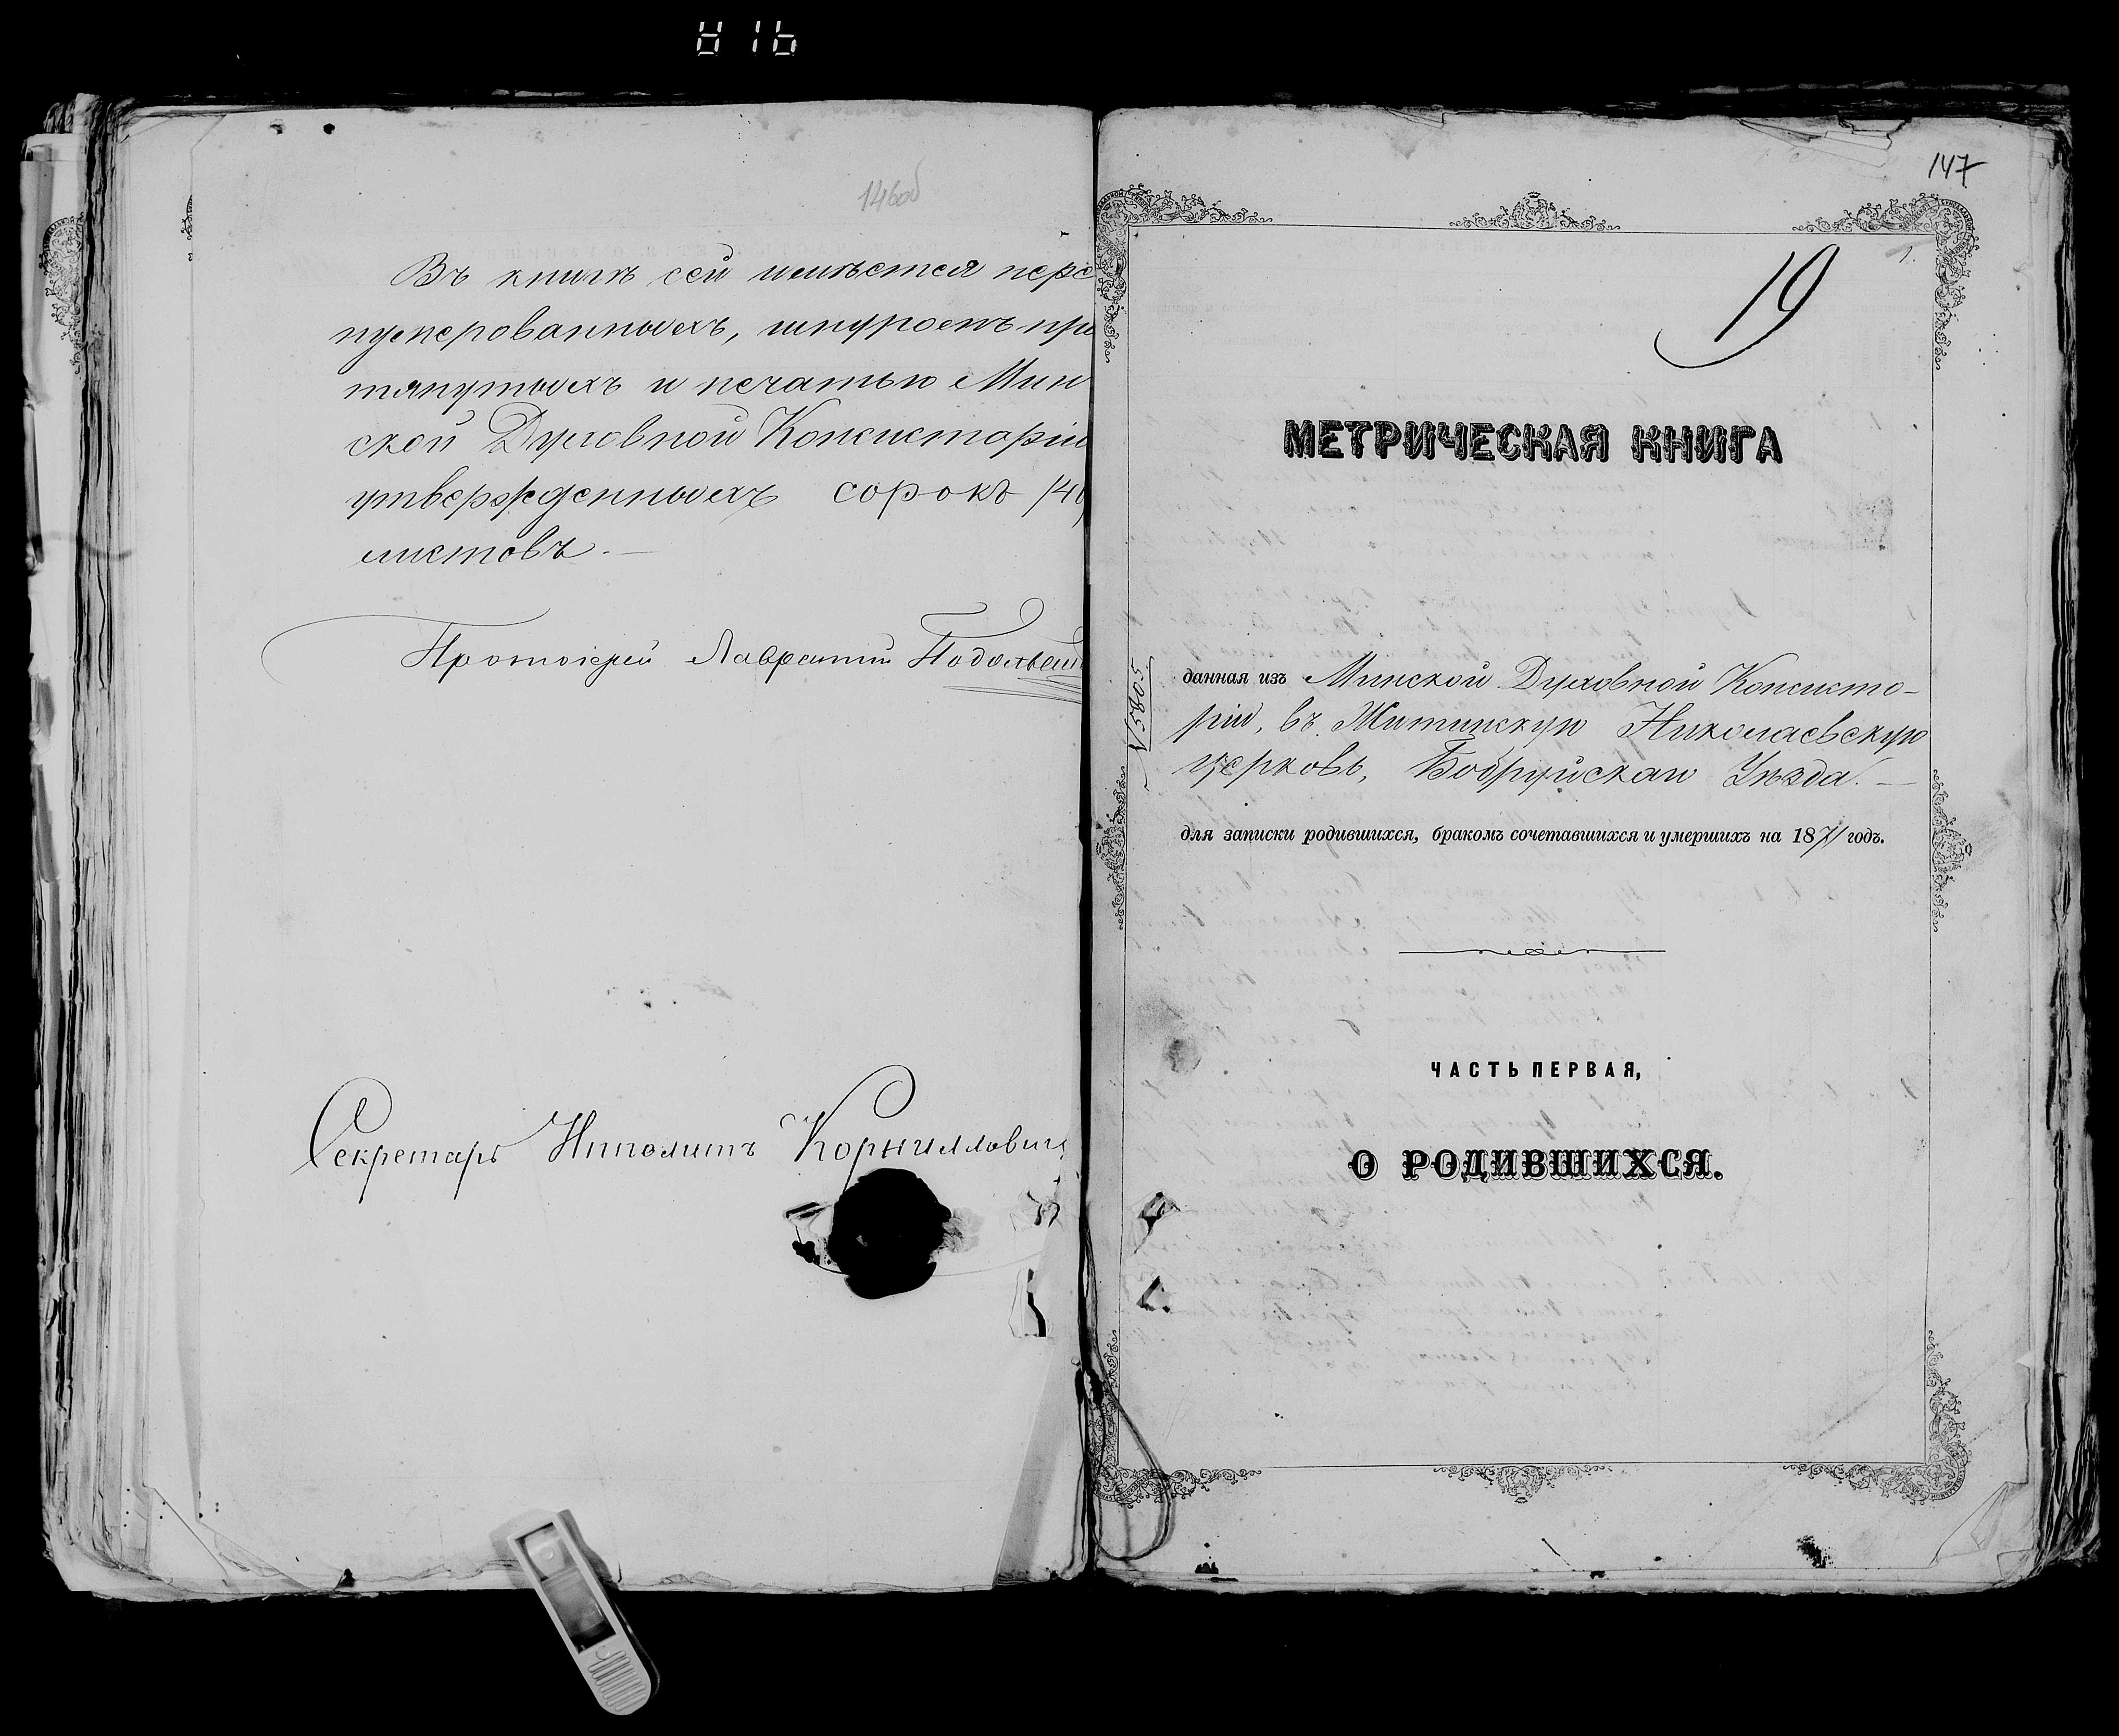 146об
Въ книгѣ сей имѣется пере
нумерованныхъ, шнуромъ про
тянутыхъ и печатью Мин
ской Духовной Консисторіи
утвержденныхъ сорокъ /40/
листовъ. —
Протоіерей Лаврентій
Секретарь Ипполитъ Корниллович
147
1.
19
МЕТРИЧЕСКАЯ КНИГА
N 5805
данная изъ Минской Духовной Консисто-
ріи, въ Житинскую Николаевскую
церковь, Бобруйскаго Уѣзда. —
для записки родившихся, бракомъ сочетавшихся и умершихъ на 1871 годъ.
ЧАСТЬ ПЕРВАЯ,
О РОДИВШИХСЯ.